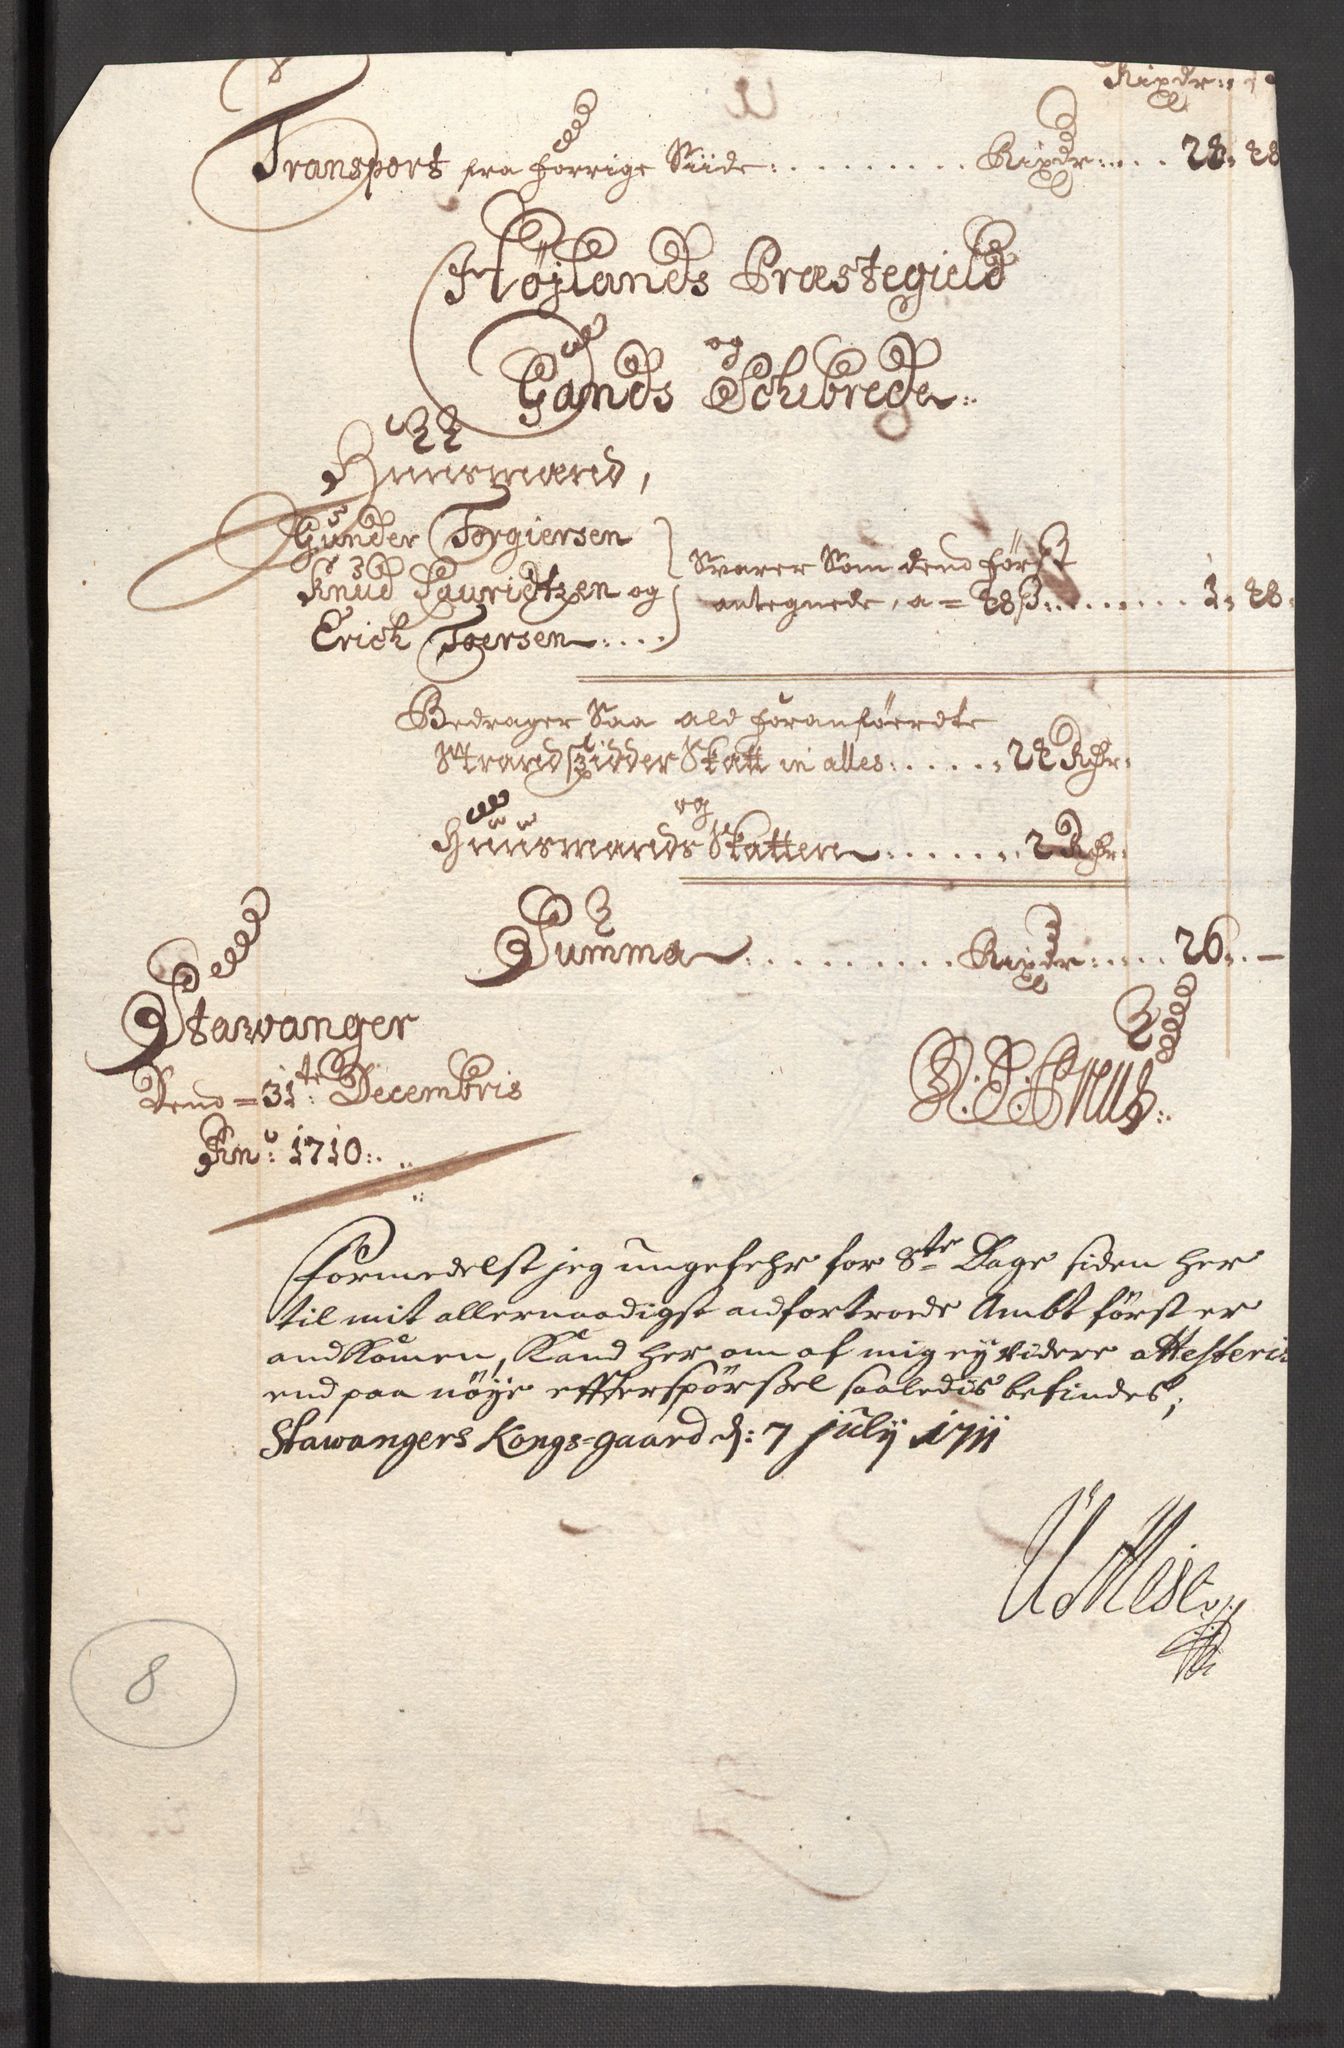 Rixdr:
Transport fra forrige Siide: . . . . . . . . Rixdr: . . . 24. 48
Højlands Præstegield
og
Gands Schibrede
Huusmænd,
Gunder Torgiersen
Knud Lauridtzen og
Erich Toersen . . . .
Svarer Som dend først
antegnede, a = 48 s: . . . . . . . 1. 48.
Bedrager Saa ald foranføerdte
Strandsidder Skatt in alles: . . . . . 24 Rdr:
og
Huusmands Skatten . . . . . . 2 Rdr:
Summa . . . . . . . . . Rixdr: . . . . 26. . —
Stawanger
Dend = 31te: Decembris
An̄o: 1710: . .
Formedelst jeg ungefehr for 8te Dage siden her
til mit allernaadigst anfortroede Ambt først er
andkomen, Kand her om af mig ey videre attesteris
end paa nøye effterspørsel saaledis befindes;
Stawangers Kongs=gaard d: 7 july 1711
8